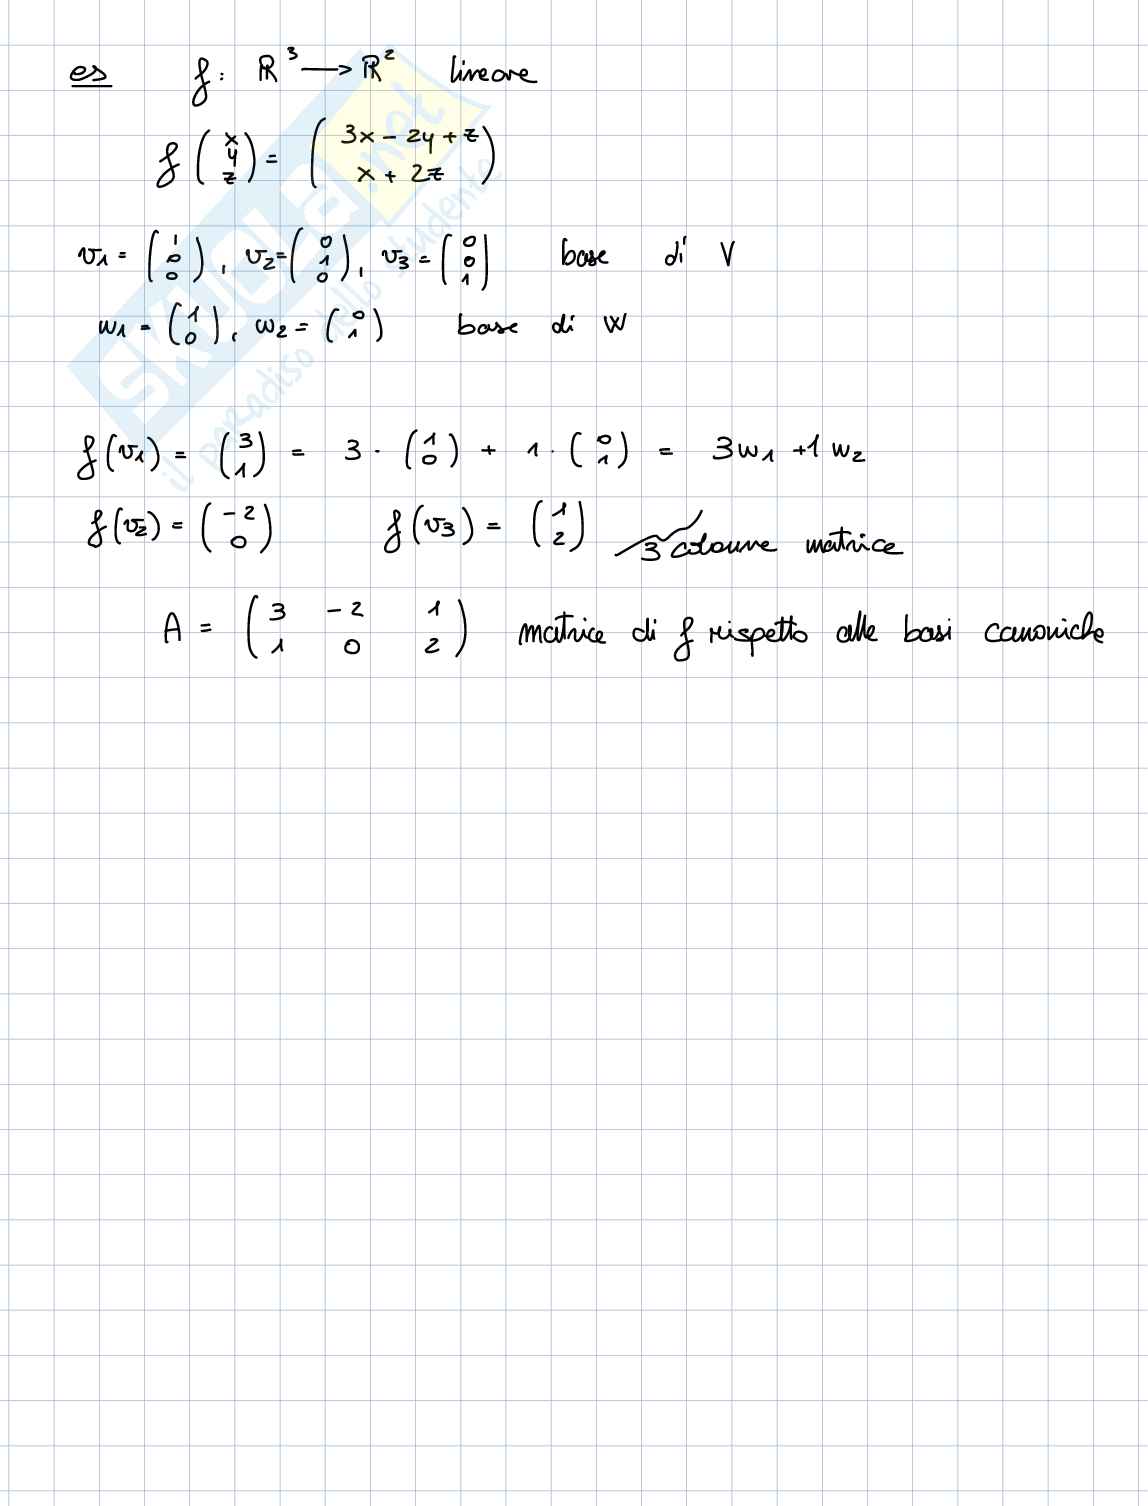 es f: ℝ³ → ℝ² lineare
f (x y z) = (3x - 2y + z x + 2z)
v1 = (1 0 0), v2 = (0 1 0), v3 = (0 0 1) base di V
w1 = (1 0), w2 = (0 1) base di W
f(v1) = (3 1) = 3 · (1 0) + 1 · (0 1) = 3w1 + 1 w2
f(v2) = (-2 0) f(v3) = (1 2) 3 colonne matrice
A = (3 -2 1 1 0 2) matrice di f rispetto alle basi canoniche
SKUOLA.net
il paradiso dello studente